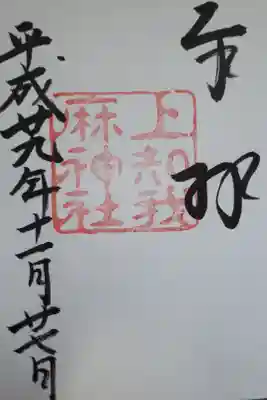 奉拝
上知我
麻神社
平成廿九年十一月廿七日